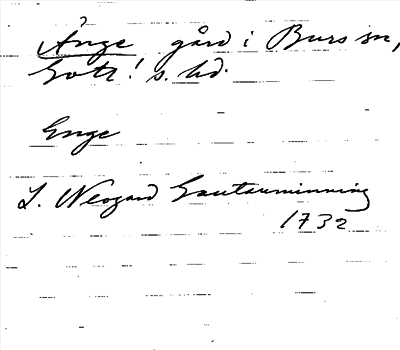 Änge gård i Burs sn,
Gotl. s. hd.
Enge
L. Neogard Gautauminning
1732